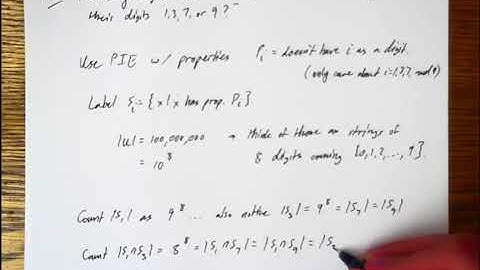 their digits 1,3,7, or 9?
Use PIE w/ properties Pi = doesn't have i as a digit.
(only care about i=1,3,7, and 9)
Label Si = {x | x has prop. Pi}.
|U| = 100,000,000 → think of these as strings of
= 10^8 8 digits among {0,1,2,...,9}.
Count |S1| as 9^8 ... also notice |S3| = 9^8 = |S7| = |S9|
Count |S1∩S3| = 8^8 = |S1∩S7| = |S1∩S9| = |S